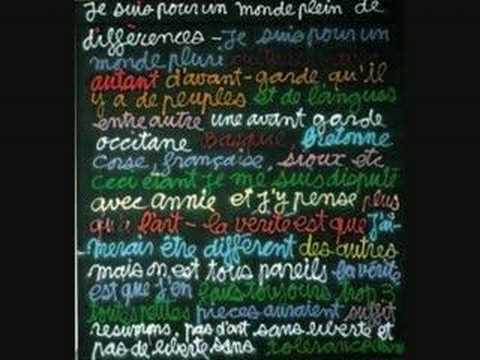 Je suis pour un monde plein de
différences - Je suis pour un
monde pluri
autant d'avant-garde qu'il
y a de peuples et de langues
entre autre une avant garde
occitane Basque, Bretonne
Corse, française, sioux etc
ceci étant je me suis disputé
avec annie et j'y pense plus
qu'a l'art - la verité est que j'ai-
merais être différent des autres
mais on est tous pareils la verité
est que j'en fais toujours trop 3
toutes petites pièces auraient suffit
resumons, pas d'art sans liberté et
pas de liberté sans